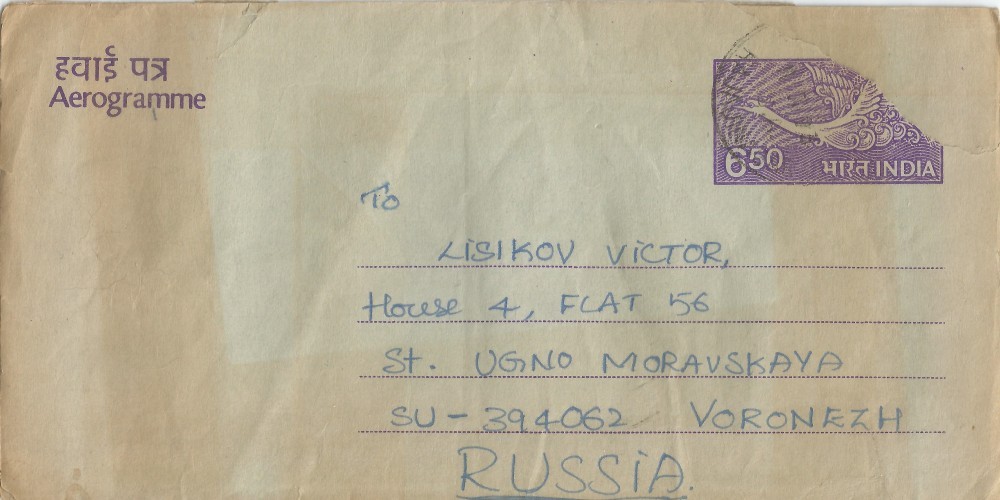 हवाई पत्र
Aerogramme
6.50 भारत INDIA
To
LISIKOV VICTOR,
House 4, FLAT 56
St. UGNO MORAVSKAYA
SU - 394062 VORONEZH
RUSSIA.